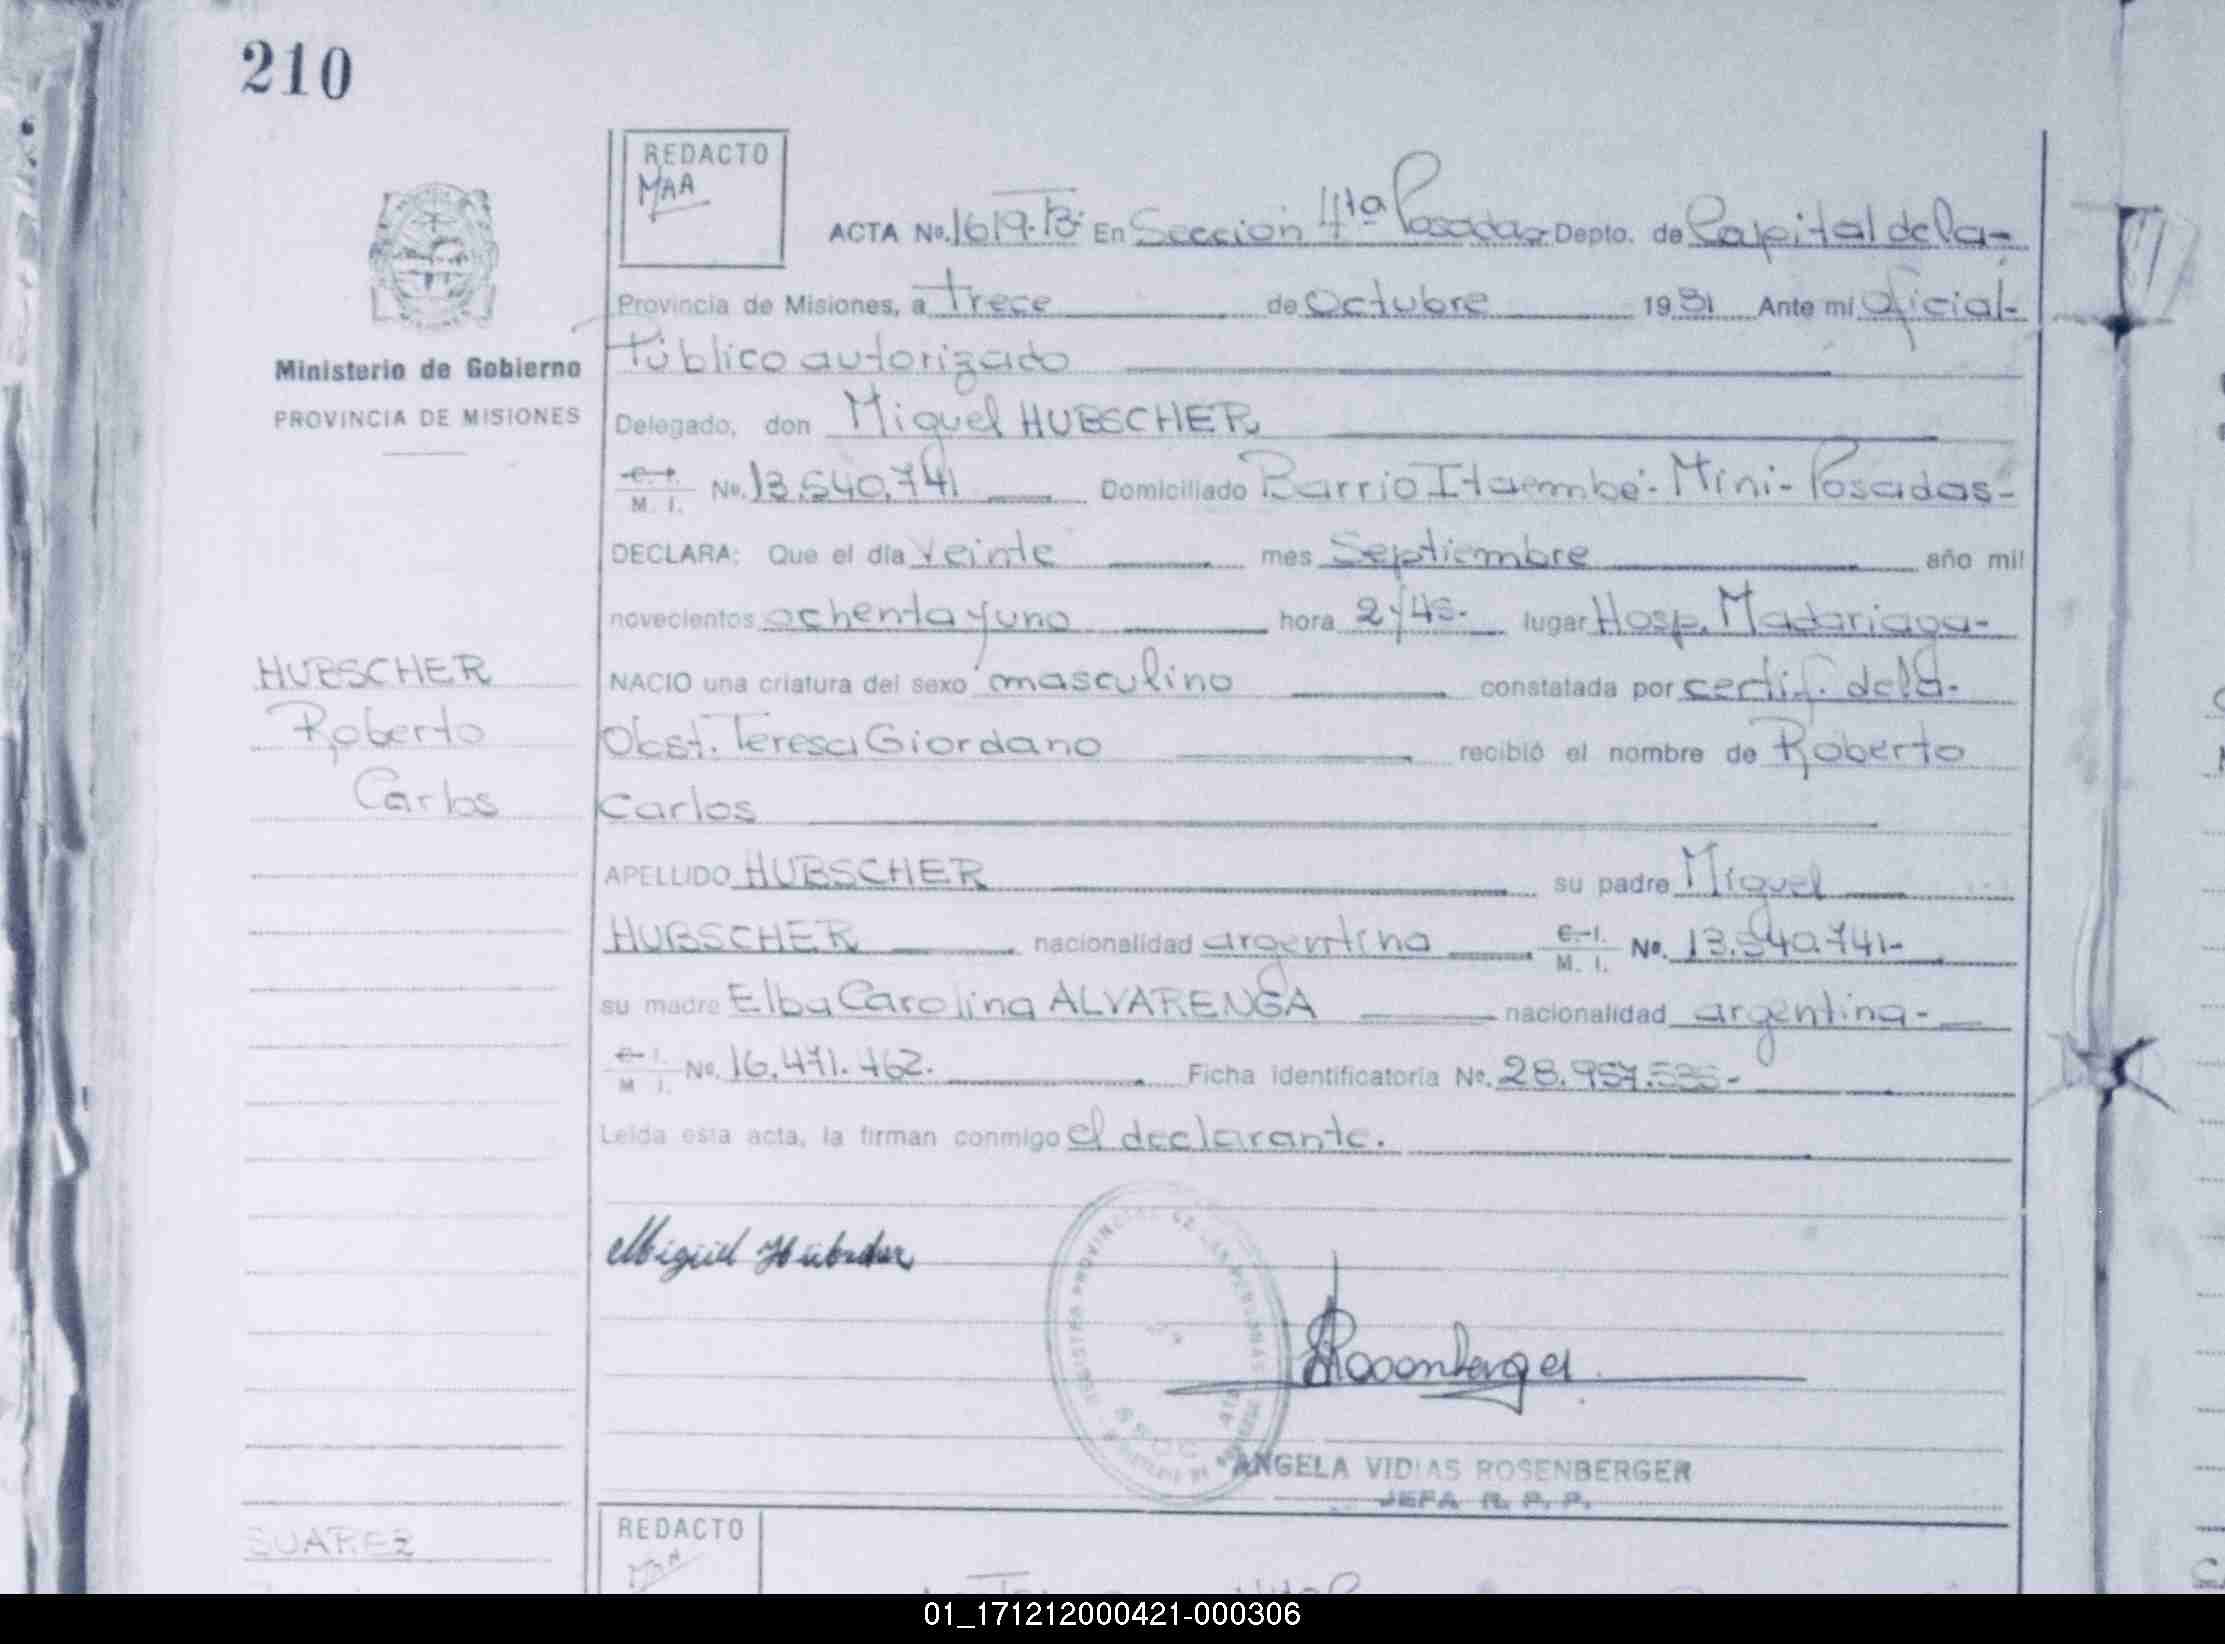 210
REDACTO
MAA
ACTA No. 1619. B: En Sección 4ta Posadas Depto. de Capital de la-
Provincia de Misiones, a Trece de Octubre 1981 Ante mí Oficial-
Público autorizado
Ministerio de Gobierno
PROVINCIA DE MISIONES
Delegado, don Miguel HUBSCHER
C. I.
M. I. No. 13.540.741 Domiciliado Barrio Itaembé-Mini-Posadas-
DECLARA: Que el día veinte mes Septiembre año mil
novecientos ochenta y uno hora 2y45- lugar Hosp. Madariaga-
NACIO una criatura del sexo masculino constatada por certif. de la-
Obst. Teresa Giordano recibió el nombre de Roberto
Carlos
HUBSCHER
Roberto
Carlos
APELLIDO HUBSCHER su padre Miguel
HUBSCHER nacionalidad argentina C. I.
M. I. No. 13.540.741-
su madre Elba Carolina ALVARENGA nacionalidad argentina-
C. I.
M. I. No. 16.471.462. Ficha identificatoria No. 28.957.535-
Leída esta acta, la firman conmigo el declarante.
Miguel Hübscher
Rosenberger
ANGELA VIDIAS ROSENBERGER
JEFA R. P. P.
REDACTO
SUAREZ
01_171212000421-000306